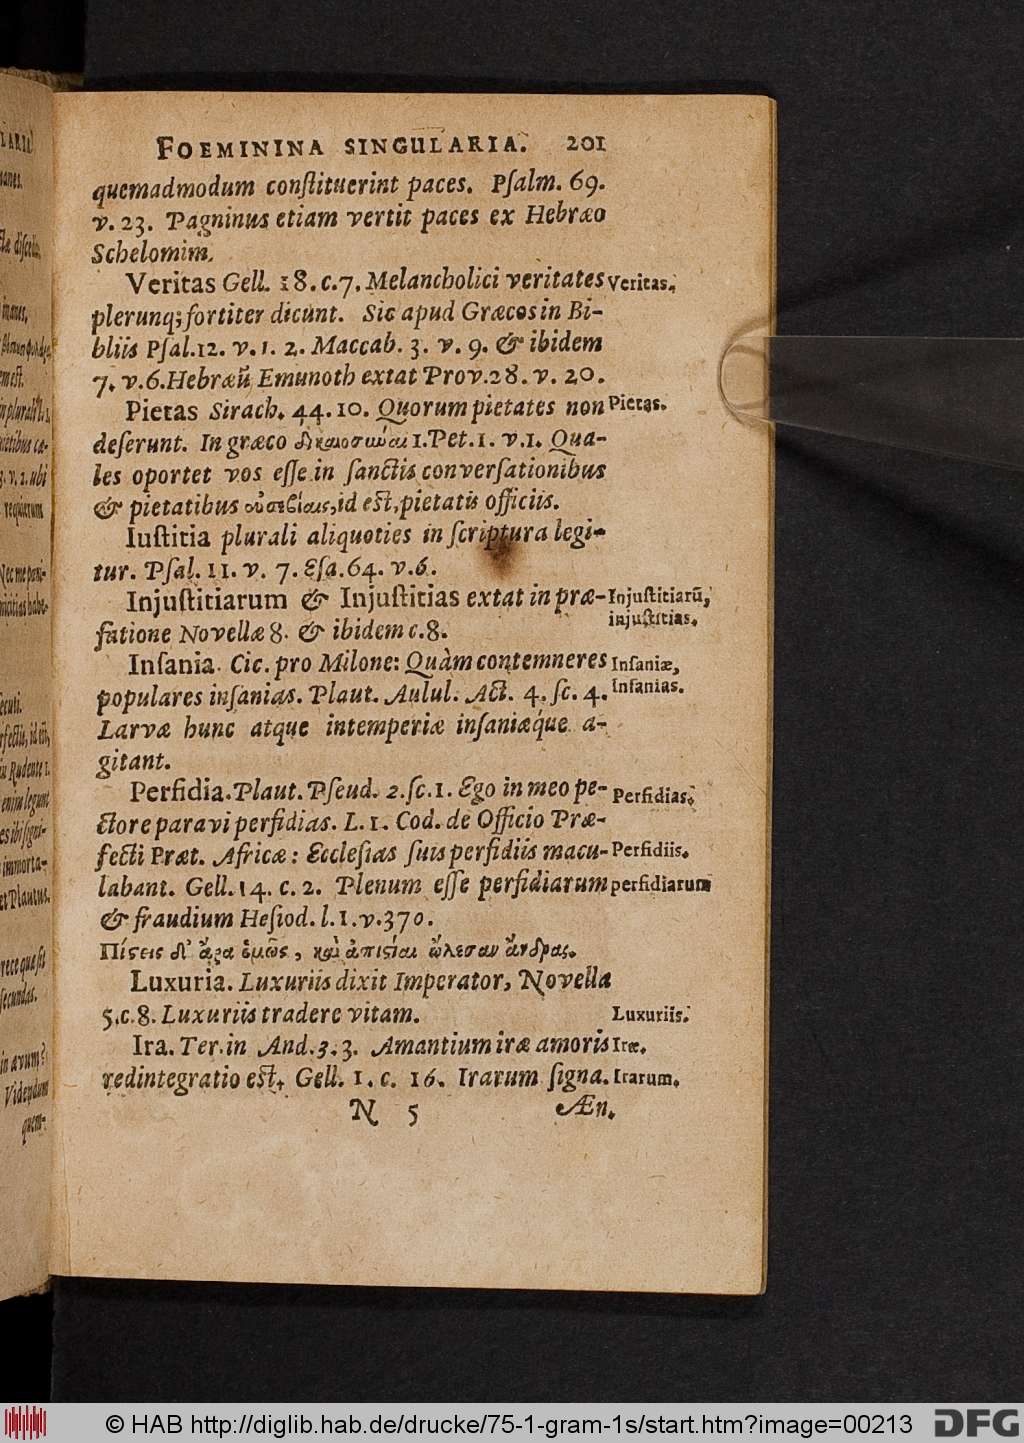 FOEMININA SINGULARIA. 201
quemadmodum conſtituerint paces. Pſalm. 69.
v. 23. Pagninus etiam vertit paces ex Hebræo
Schelomim.
Veritas Gell. 18. c. 7. Melancholici veritates Veritas.
plerunq; fortiter dicunt. Sic apud Græcos in Bi-
bliis Pſal. 12. v. 1. 2. Maccab. 3. v. 9. & ibidem
7. v. 6. Hebræū Emunoth extat Prov. 28. v. 20.
Pietas Sirach. 44. 10. Quorum pietates non Pietas.
deſerunt. In græco δικαιοσύναι 1. Pet. 1. v. 1. Qua-
les oportet vos eſſe in ſanctis converſationibus
& pietatibus οὐσεβίαις, id eſt, pietatis officiis.
Iuſtitia plurali aliquoties in ſcriptura legi-
tur. Pſal. 11. v. 7. Eſa. 64. v. 6.
Injuſtitiarum & Injuſtitias extat in præ- Injuſtitiarū,
fatione Novellæ 8. & ibidem c. 8. injuſtitias.
Inſania. Cic. pro Milone: Quàm contemneres Inſaniæ,
populares inſanias. Plaut. Aulul. Act. 4. ſc. 4. Inſanias.
Larvæ hunc atque intemperiæ inſaniæq́ue a-
gitant.
Perfidia. Plaut. Pſeud. 2. ſc. 1. Ego in meo pe- Perfidias.
ctore paravi perfidias. L. 1. Cod. de Officio Præ-
fecti Præt. Africæ: Eccleſias ſuis perfidiis macu- Perfidiis.
labant. Gell. 14. c. 2. Plenum eſſe perfidiarum perfidiarum
& fraudium Heſiod. l. 1. v. 370.
Πίστεις δ' ἄρα ὁμῶς, καὶ ἀπιστίαι ὤλεσαν ἄνδρας.
Luxuria. Luxuriis dixit Imperator, Novella
5. c. 8. Luxuriis tradere vitam. Luxuriis.
Ira. Ter. in And. 3. 3. Amantium iræ amoris Iræ.
redintegratio eſt. Gell. 1. c. 16. Irarum ſigna. Irarum.
N 5 Æn.
© HAB http://diglib.hab.de/drucke/75-1-gram-1s/start.htm?image=00213 DFG